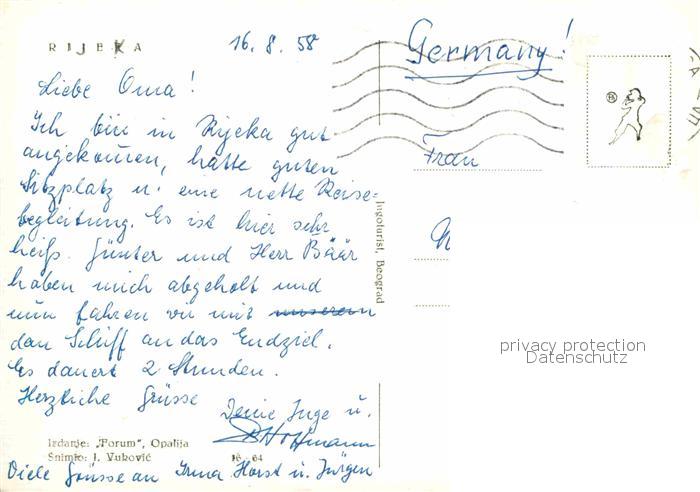 RIJEKA
16.8.58
Germany!
Liebe Oma!
Ich bin in Rijeka gut
angekommen, hatte guten
Sitzplatz u. eine nette Reise-
begleitung. Es ist hier sehr
heiß. Günter und Herr Bäär
haben mich abgeholt und
nun fahren wir mit unserem
dan Schiff an das Endziel.
Es dauert 2 Stunden.
Herzliche Grüsse
Deine Inge u.
Hoffmann
Viele Grüsse an Irma Horst u. Jürgen
Izdanje: „Forum", Opatija
Snimio: I. Vuković
16-64
Jugoturist, Beograd
Frau
privacy protection
Datenschutz